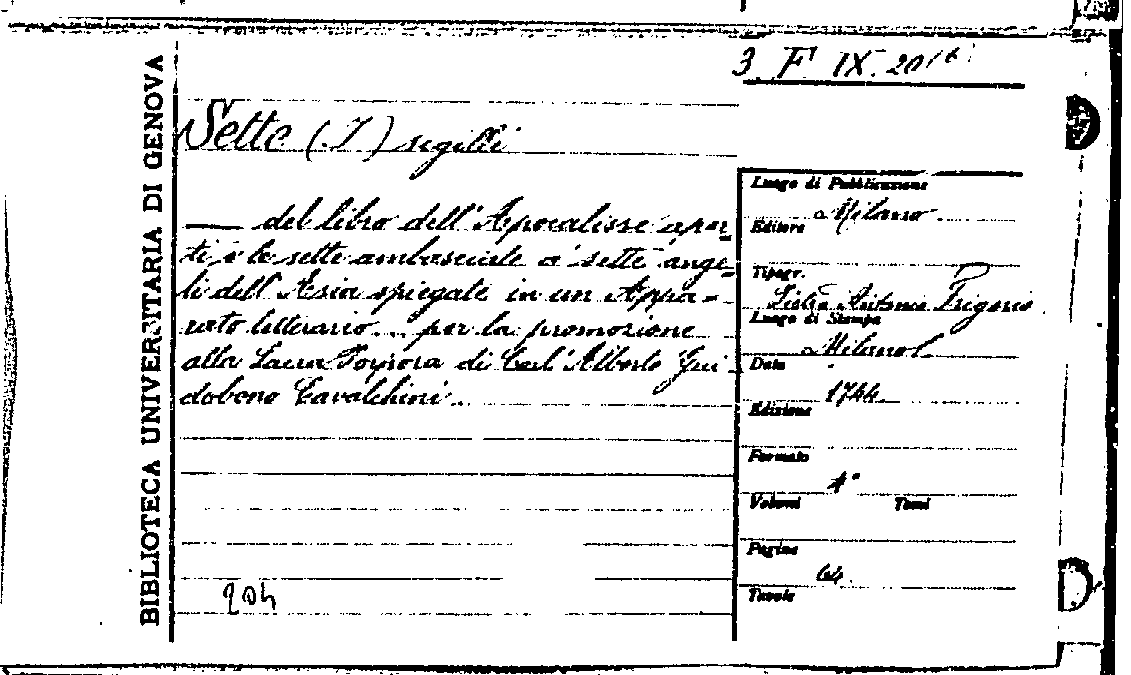 3 F IX. 20
BIBLIOTECA UNIVERSITARIA DI GENOVA
Sette (I) sigilli
—— del libro dell'Apocalisse aper-
ti e le sette ambasciate a' sette ange-
li dell'Asia spiegate in un Appa-
rato letterario... per la promozione
alla Sacra Porpora di Carl'Alberto Gui-
dobono Cavalchini.
204
Luogo di Pubblicazione
Milano
Editore
Tipogr.
Antonio Frigerio
Luogo di Stampa
Milano
Data
1744
Edizione
Formato
4°
Volumi Tomi
Pagine
64
Tavole